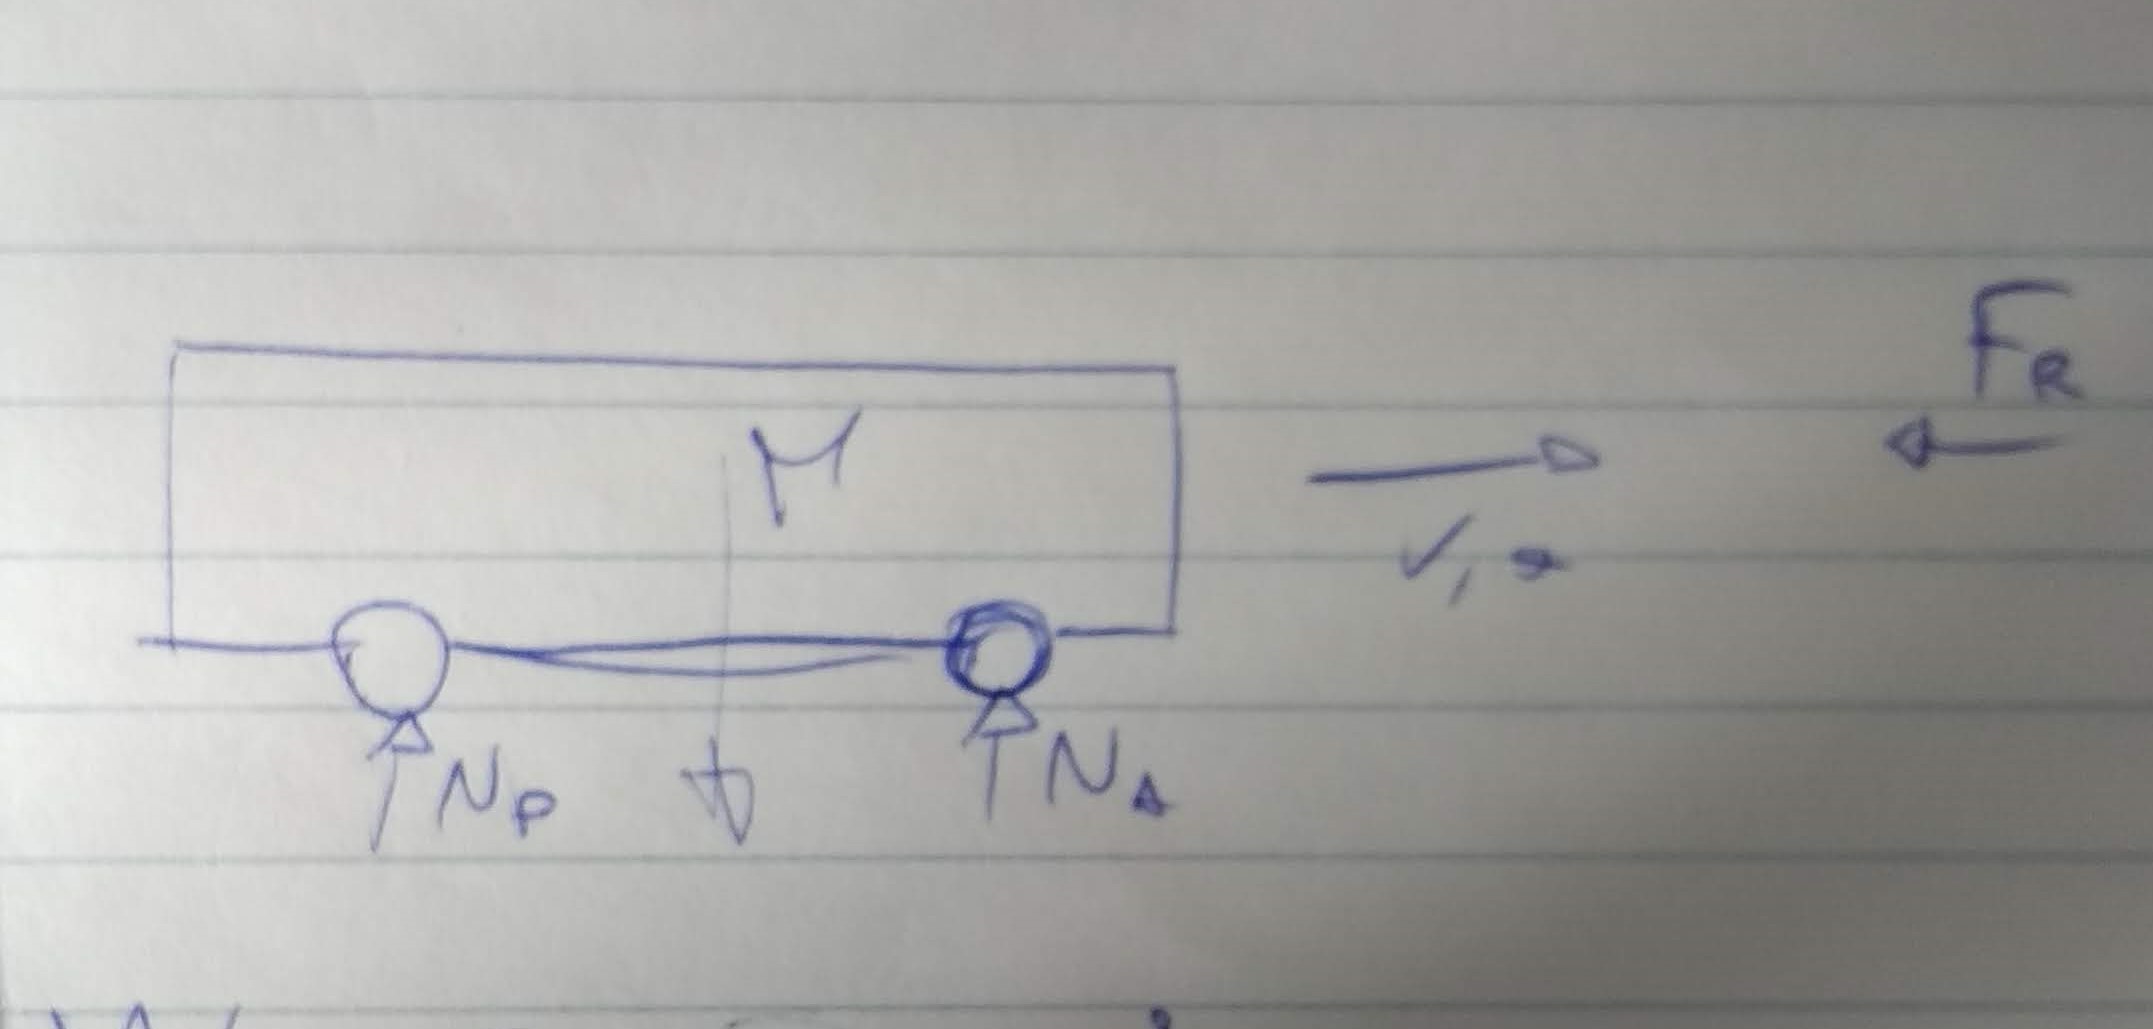 F_R
M
v, a
N_P N_A